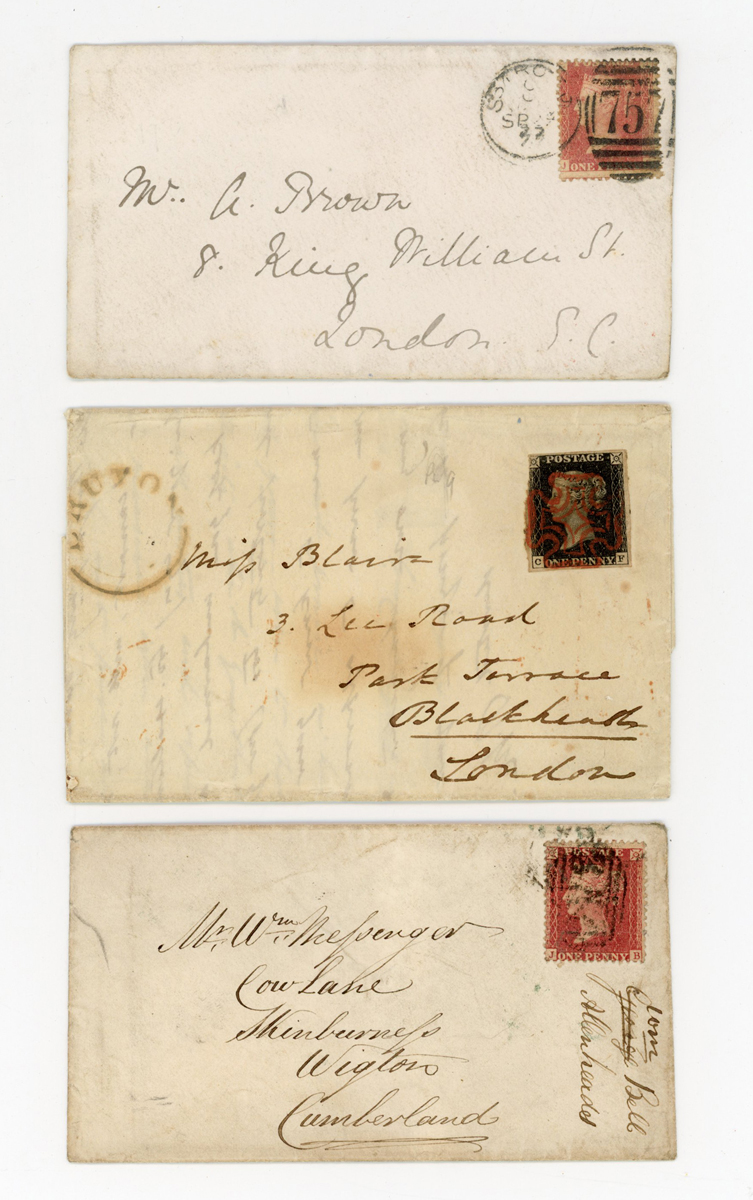 SP
77
757
J ONE
Mr. A. Brown
8. King William St.
London. E. C.
BRUTON
POSTAGE
C ONE PENNY F
Miss Blair
3. Lee Road
Park Terrace
Blackheath
London
POSTAGE
J ONE PENNY B
Mr. Wm. Messenger
Cow Lane
Skinburness
Wigton
Cumberland
from
George Bell
Allenheads